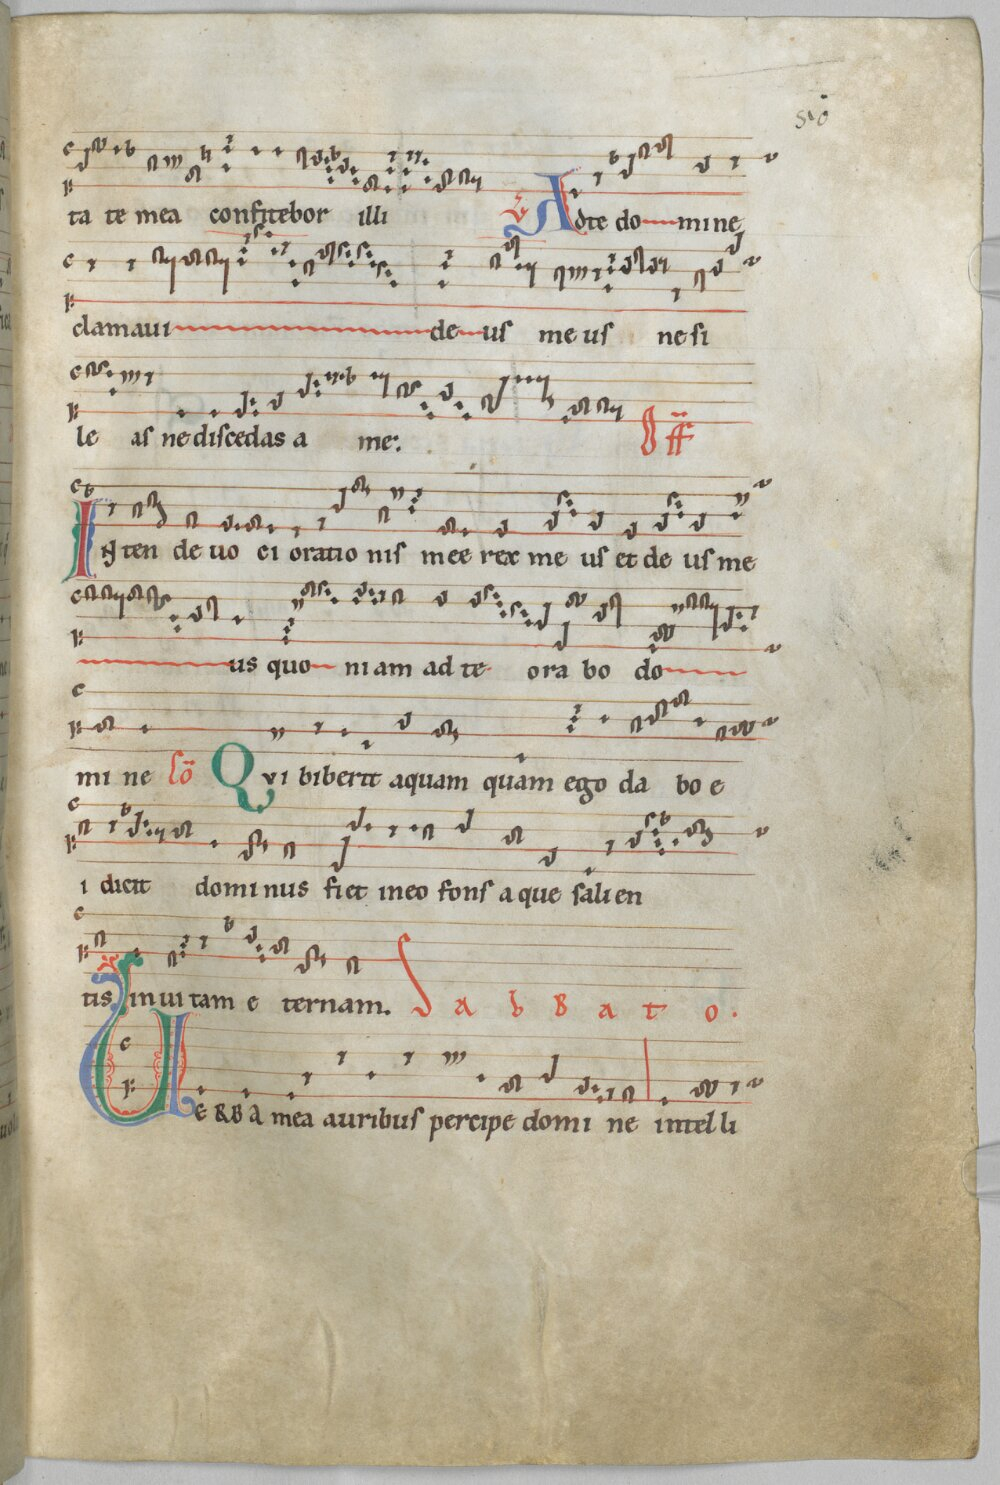 ta te mea confitebor illi ℣ Adte do mine
clamaui de us me us ne si
le as ne discedas a me: Off
Inten de uo ci oratio nis mee rex me us et de us me
us quo niam ad te ora bo do
mi ne Co Qvi biberit aquam quam ego da bo e
i dicit dominus fiet in eo fons a que salien
tis in ui tam e ternam. SabBato.
UERBA mea auribus percipe domi ne intelli